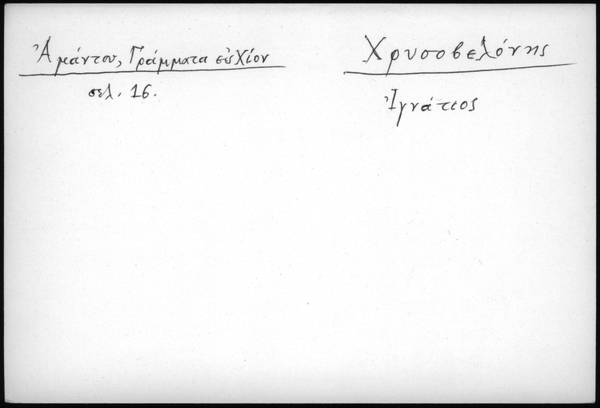 Ἀμάντου, Γράμματα εἰς Χίον
σελ. 16.
Χρυσοβελόνης
Ἰγνάτιος